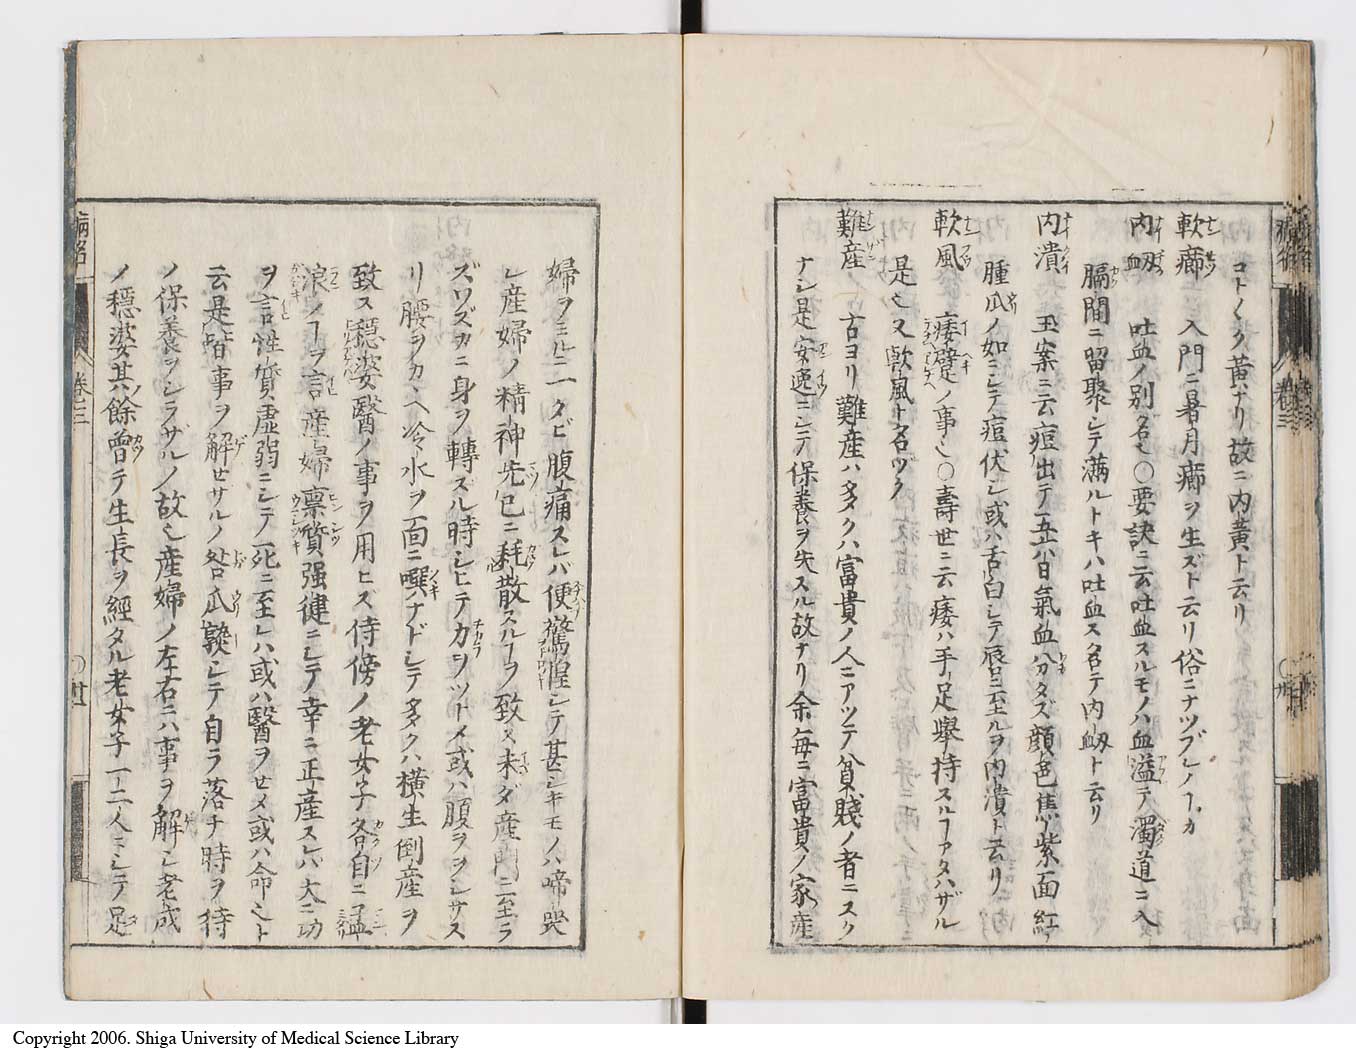 コト〴〵ク黄ナリ故ニ内黄ト云リ
軟癤 入門ニ暑月癤ヲ生ズト云リ俗ニナツブシノヿカ
内衂 吐血ノ別名也○要訣ニ云吐血スルモノハ血溢テ濁道ニ入
膈間ニ留聚シテ満ルトキハ吐血ス名テ内衂ト云リ
内潰 玉案ニ云痘出テ五六日氣血分タズ顔色焦紫面紅
腫瓜ノ如ニシテ痘伏シ或ハ舌白シテ唇ニ至ルヲ内潰ト云リ
軟風 痿躄ノ事也○壽世ニ云痿ハ手足舉持スルヿアタハザル
是也又軟風ト名ツク
難産 古ヨリ難産ハ多クハ富貴ノ人ニアツテ貧賤ノ者ニスク
ナシ是安逸ニシテ保養ヲ失スル故ナリ余毎ニ富貴ノ家産
婦ヲミルニ一タビ腹痛スレバ便驚惶シテ甚シキモノハ啼哭
シ産婦ノ精神先已ニ耗散スルヿヲ致ス未ダ産門ニ至ラ
ズワズカニ身ヲ轉ズル時シヒテカヲツトメ或ハ腹ヲヲシサス
リ腰ヲカヽヘ冷水ヲ面ニ噀ナドシテ多クハ横生倒産ヲ
致ス穏婆醫ノ事ヲ用ヒズ侍傍ノ老女子各自ニ孟
浪ノヿヲ言産婦稟質强健ニシテ幸ニ正産スレバ大ニ功
ヲ言性質虚弱ニシテ死ニ至レハ或ハ醫ヲセメ或ハ命也ト
云是皆事ヲ解セサルノ咎瓜熟シテ自ラ落チ時ヲ待
ノ保養ヲシラザルノ故也産婦ノ左右ニハ事ヲ解シ老成
ノ穏婆其餘曾テ生長ヲ經タル老女子一二人ニシテ足
病名
卷三